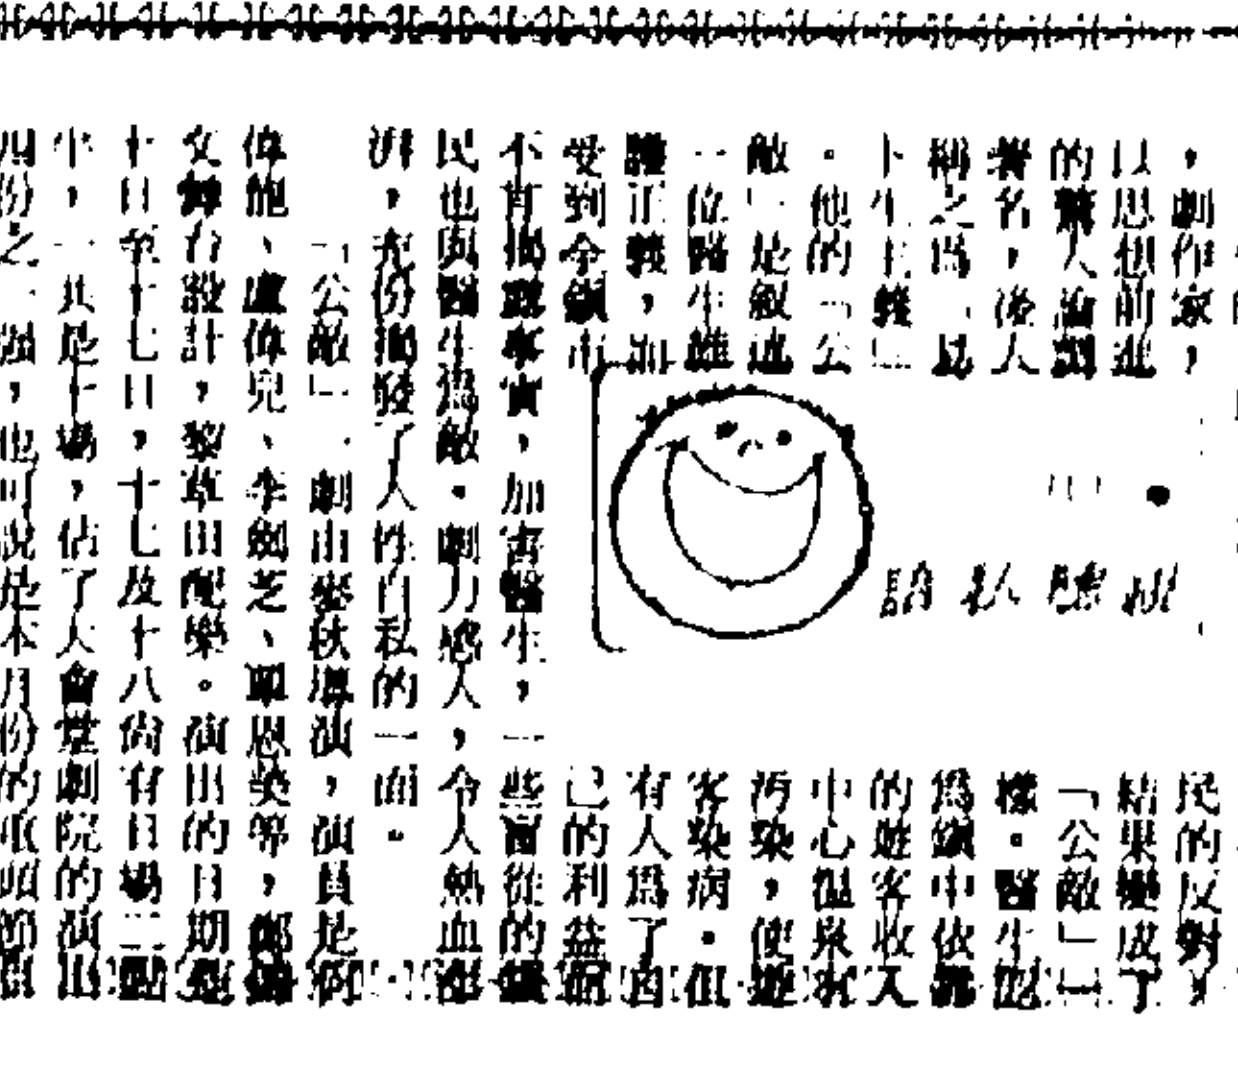 ，劇作家，
以思想前進
的驚人論調
著名，後人
稱之為「易
卜生主義」
。他的「公
敵」是敍述
一位醫生維
護正義，而
受到全鎮市
民的反對，
結果變成了
「公敵」一
樣。醫生
為鎮中依靠
的遊客收入
中心溫泉水
污染，使遊
客染病。但
有人為了自
己的利益而
不肯揭露事實，加害醫生，一些盲從的鎮
民也與醫生為敵。劇力感人，令人熱血澎
湃，充份揭發了人性自私的一面。
「公敵」一劇由麥秋導演，演員是何
偉龍、盧偉兒、李劍芝、思榮等，
文舞台設計，黎草田配樂。演出的日期是
十日至十七日，十七及十八尚有日場二點
半，一共是十場，佔了大會堂劇院的演出
四份之一強，也可說是本月份的重頭節目